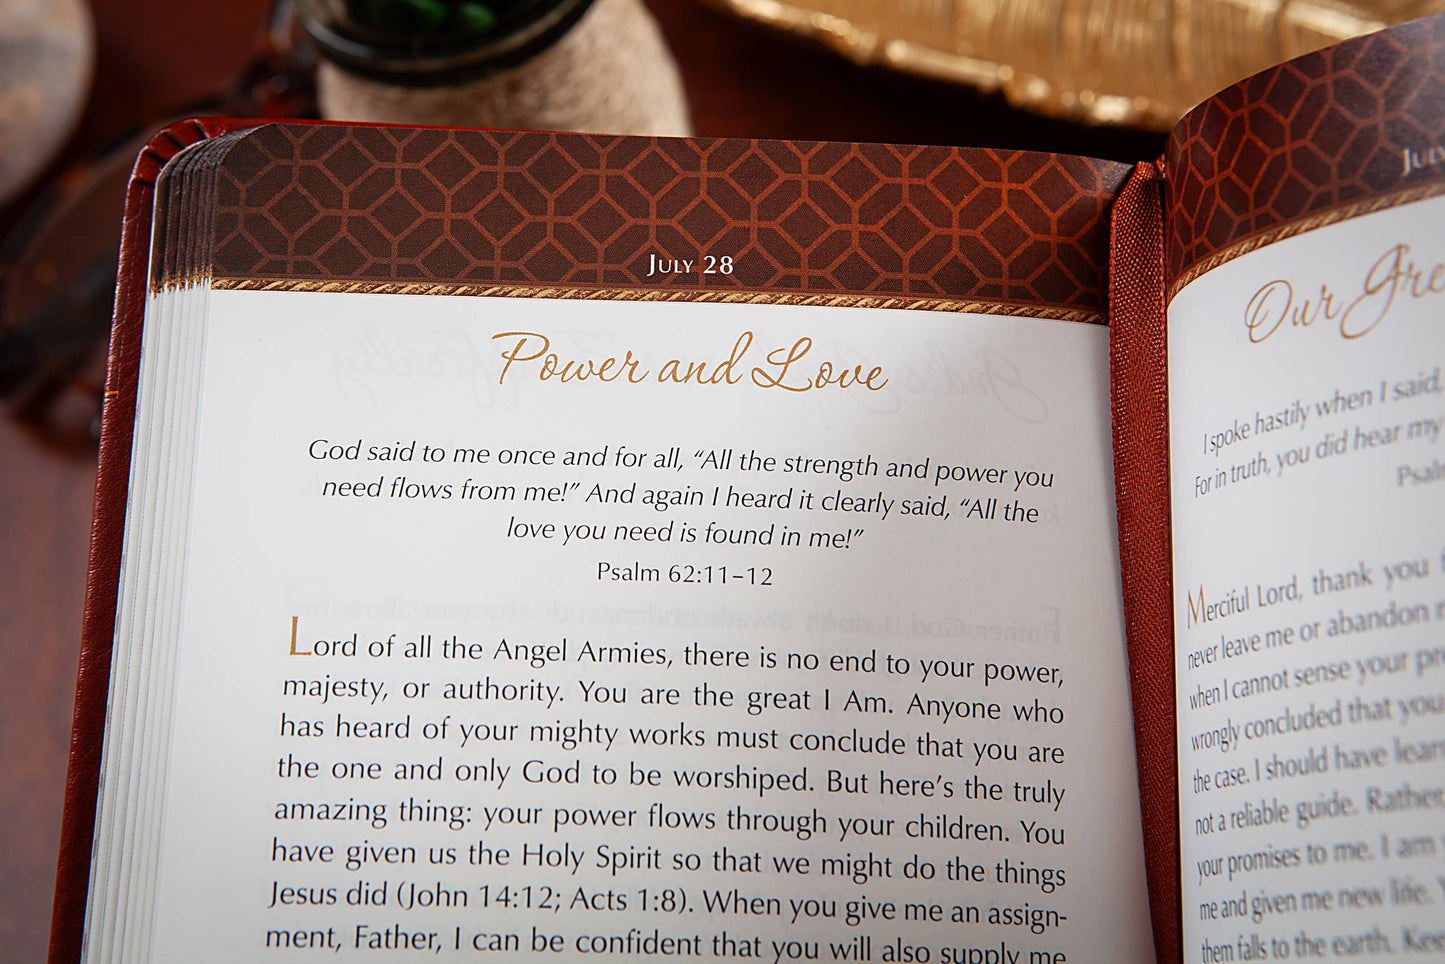 July 28
Power and Love
God said to me once and for all, “All the strength and power you
need flows from me!” And again I heard it clearly said, “All the
love you need is found in me!”
Psalm 62:11–12
Lord of all the Angel Armies, there is no end to your power,
majesty, or authority. You are the great I Am. Anyone who
has heard of your mighty works must conclude that you are
the one and only God to be worshiped. But here’s the truly
amazing thing: your power flows through your children. You
have given us the Holy Spirit so that we might do the things
Jesus did (John 14:12; Acts 1:8). When you give me an assign-
ment, Father, I can be confident that you will also supply me
July
Our
I spoke hastily when I said,
For in truth, you did hear my
Psalm
Merciful Lord, thank you
never leave me or abandon
when I cannot sense your
wrongly concluded that you
the case. I should have
not a reliable guide. Rather
your promises to me. I am
me and given me new life.
them falls to the earth.